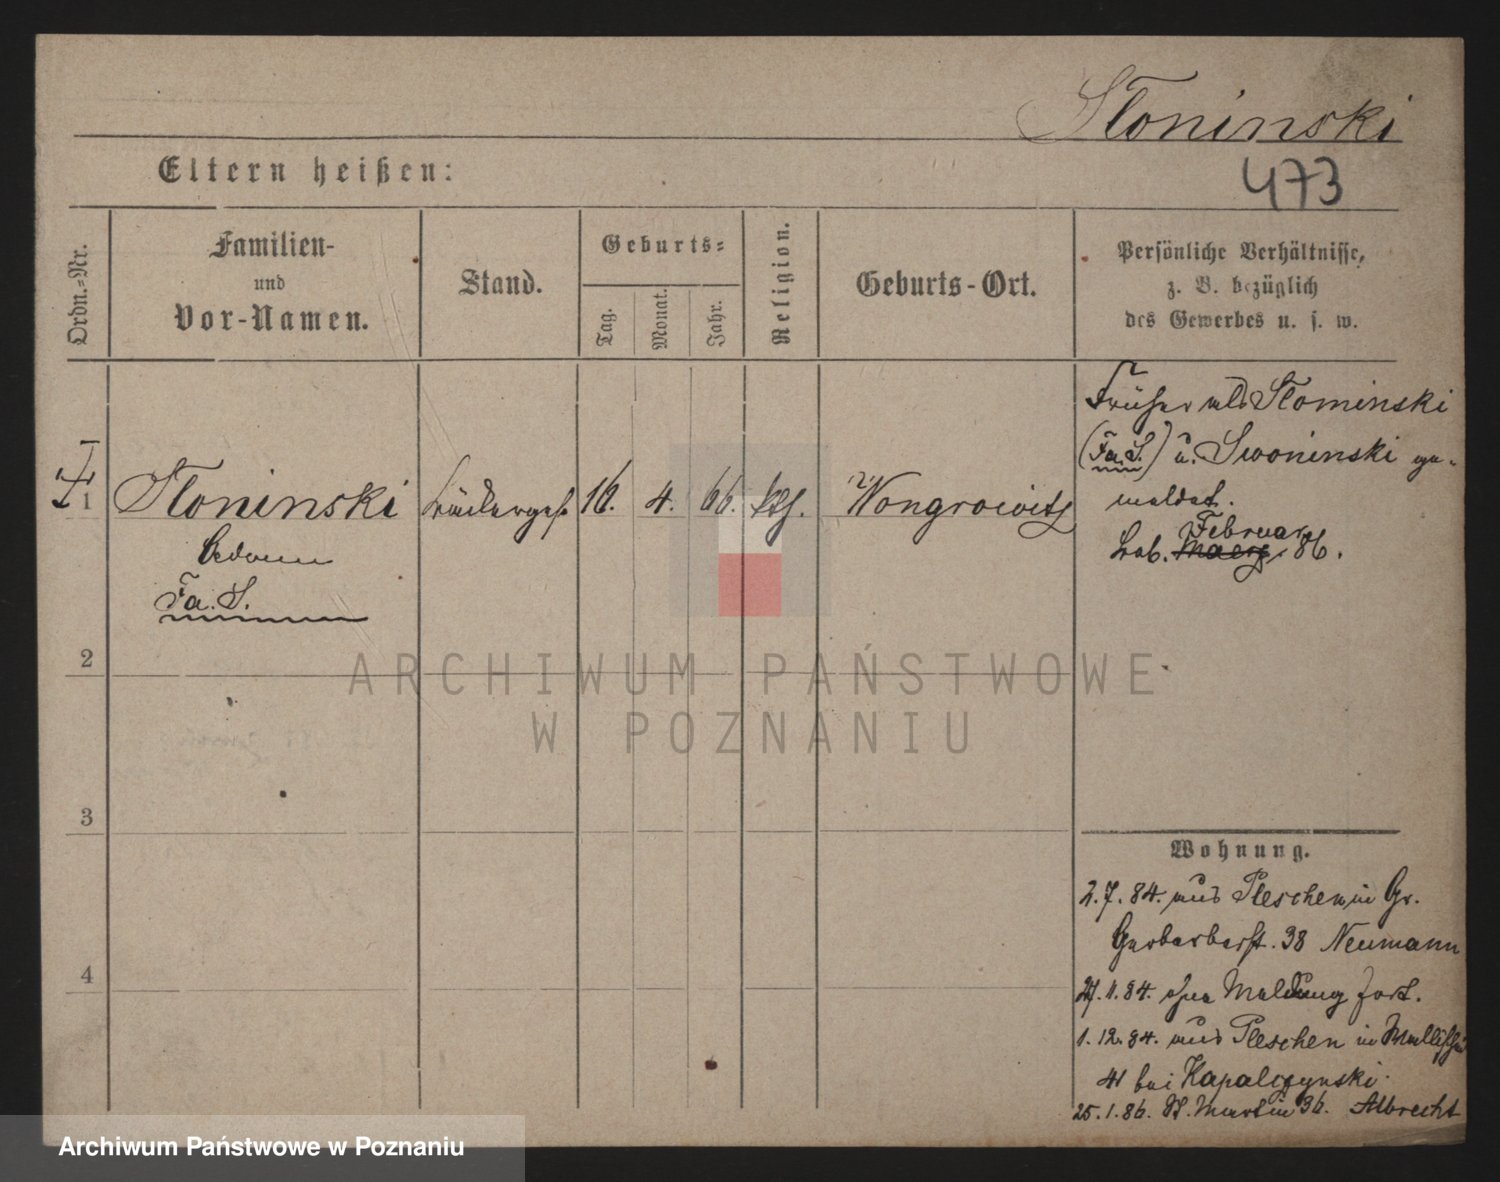 Sloninski
473
Eltern heißen:
Ordn.-Nr.
Familien-
und
Vor-Namen.
Stand.
Geburts-
Tag.
Monat.
Jahr.
Religion.
Geburts-Ort.
Persönliche Verhältnisse,
z. B. bezüglich
des Gewerbes u. s. w.
1
Sloninski
Adam
Fa. S.
16. 4. 66. kth.
Wongrowitz
Früher als Slominski
(Fa. S.) u. Swoninski ge-
meldet.
Februar
Lab. Maerz 86.
2
3
4
Wohnung.
2.7.84. aus Pleschen, in Gr.
Gerberstr. 38 Neumann
27.11.84. ohne Meldung fort.
1.12.84. aus Pleschen in Wallischei
41 bei Kapalczynski.
25.1.86. St. Martin 36. Albrecht
ARCHIWUM PAŃSTWOWE
W POZNANIU
Archiwum Państwowe w Poznaniu